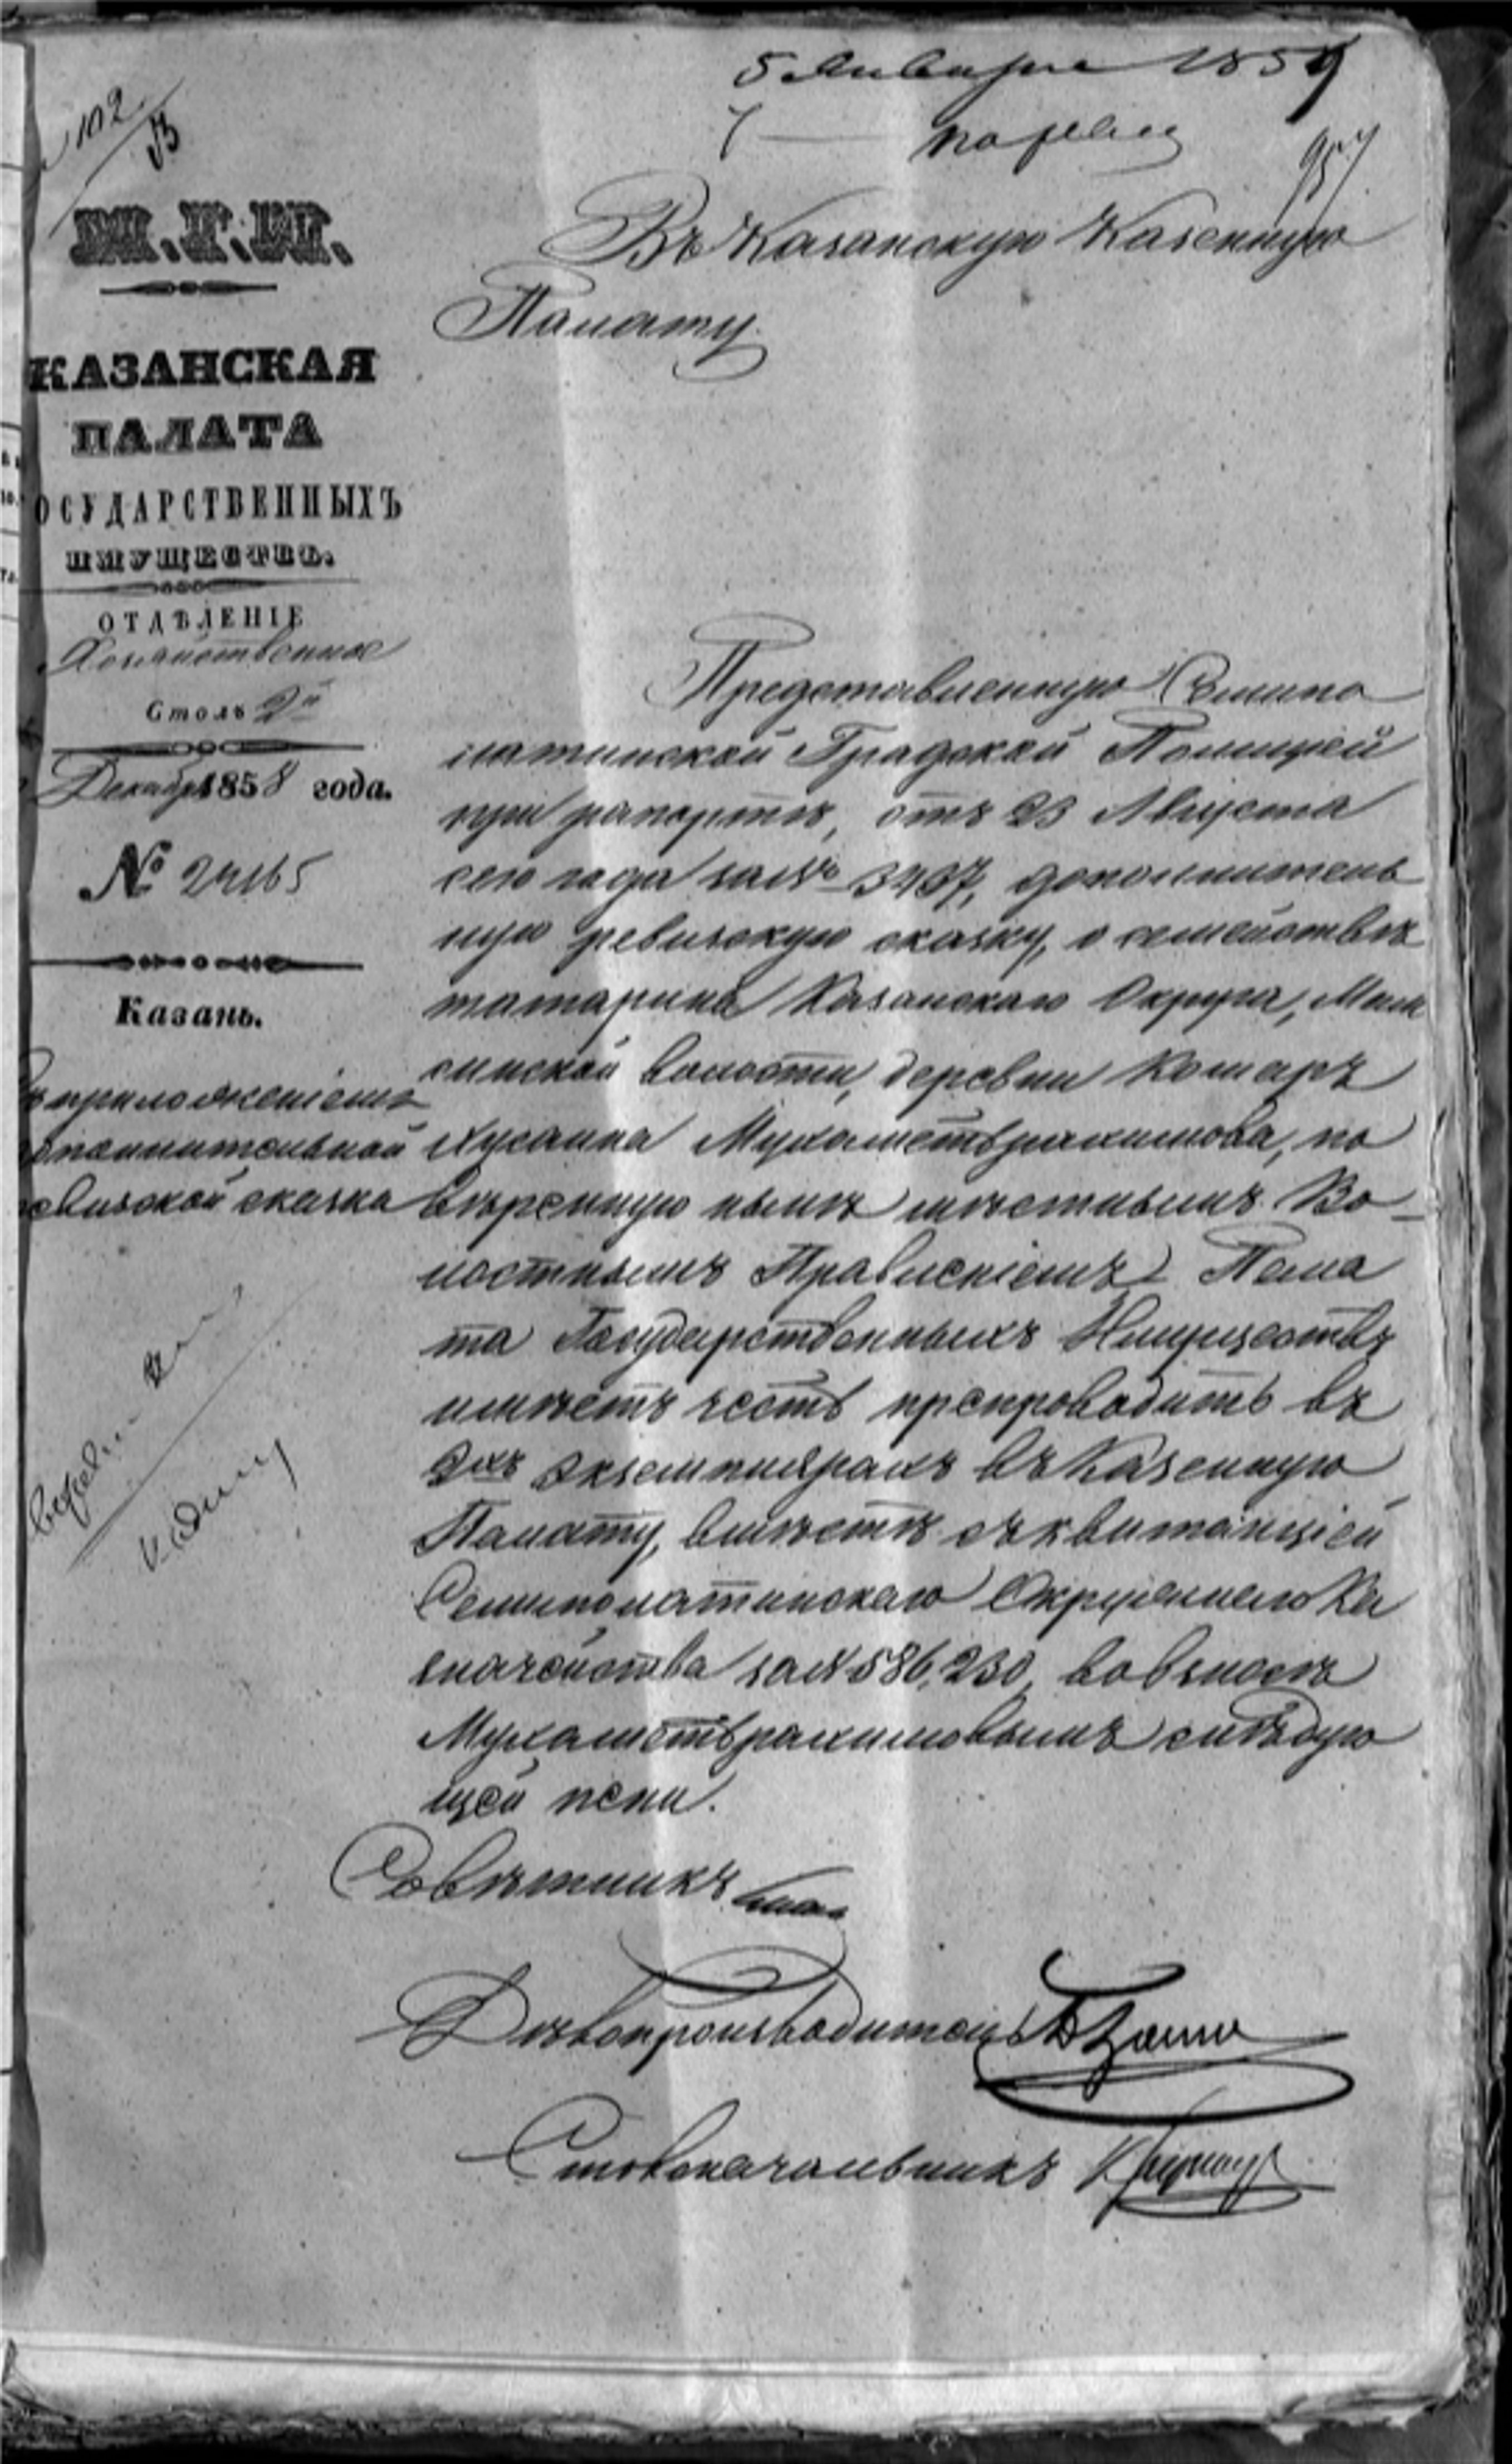 5 Января 1859
102
М.Г.И.
КАЗАНСКАЯ
ПАЛАТА
ОСУДАРСТВЕННЫХЪ
ИМУЩЕСТВЪ.
ОТДѢЛЕНІЕ
Хозяйственное
Столъ 2й
Декабря 1858 года.
№ 24165
Казань.
приложеніемъ
полнительной
евизской сказки
Въ Казанскую Казенную
Палату.
Представленную Семипо
латинской Градской Полиціей
при рапортѣ, отъ 23 Августа
сего года за № 3437, дополнитель
ную ревизскую сказку, о семействѣ
татарина Казанскаго Округа, Мам
синской волости, деревни Комаръ
Хусаина Мухаметьрахимова, по
вѣренную нынѣ мѣстнымъ Во-
лостнымъ Правленіемъ Пала
та Государственныхъ Имуществъ
имѣетъ честь препроводить въ
2хъ экземплярахъ въ Казенную
Палату, вмѣстѣ съ квитанціей
Семипалатинскаго Окружнаго Ка
значейства за № 586,230 во взносѣ
Мухаметьрахимовымъ слѣдую
щей пени.
Совѣтникъ
Дѣлопроизводитель
Столоначальникъ